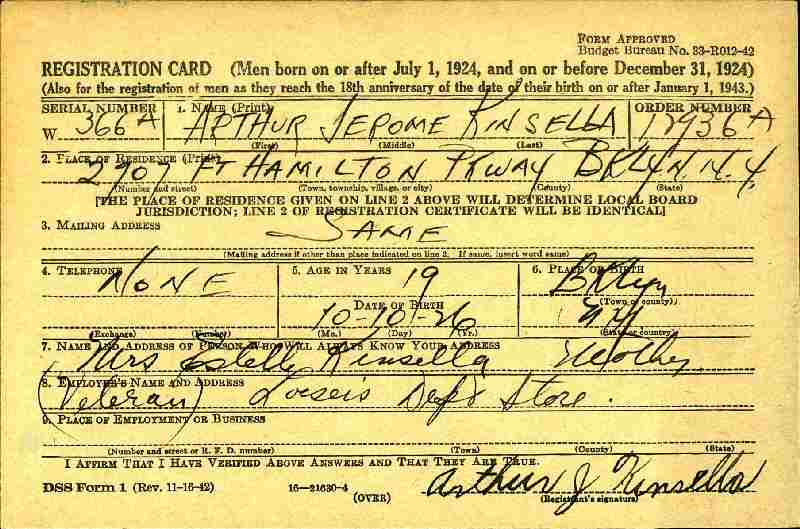 FORM APPROVED
Budget Bureau No. 33-R012-42
REGISTRATION CARD (Men born on or after July 1, 1924, and on or before December 31, 1924)
(Also for the registration of men as they reach the 18th anniversary of the date of their birth on or after January 1, 1943.)
SERIAL NUMBER 1. NAME (Print) ORDER NUMBER
W 366 A ARTHUR JEROME KINSELLA 12936 A
(First) (Middle) (Last)
2. PLACE OF RESIDENCE (Print)
2907 FT HAMILTON PKWAY BKLYN. N.Y.
(Number and street) (Town, township, village, or city) (County) (State)
[THE PLACE OF RESIDENCE GIVEN ON LINE 2 ABOVE WILL DETERMINE LOCAL BOARD
JURISDICTION; LINE 2 OF REGISTRATION CERTIFICATE WILL BE IDENTICAL]
3. MAILING ADDRESS
SAME
(Mailing address if other than place indicated on line 2. If same, insert word same)
4. TELEPHONE 5. AGE IN YEARS 6. PLACE OF BIRTH
NONE 19 Bklyn
DATE OF BIRTH (Town or county)
10-10-26 N.Y.
(Exchange) (Number) (Mo.) (Day) (Yr.) (State or country)
7. NAME AND ADDRESS OF PERSON WHO WILL ALWAYS KNOW YOUR ADDRESS
Mrs Estelle Kinsella Mother
8. EMPLOYER'S NAME AND ADDRESS
(Veteran) Loeseis Dept Store.
9. PLACE OF EMPLOYMENT OR BUSINESS
(Number and street or R. F. D. number) (Town) (County) (State)
I AFFIRM THAT I HAVE VERIFIED ABOVE ANSWERS AND THAT THEY ARE TRUE.
DSS Form 1 (Rev. 11-16-42) 16—21630-4 Arthur J Kinsella
(OVER) (Registrant's signature)